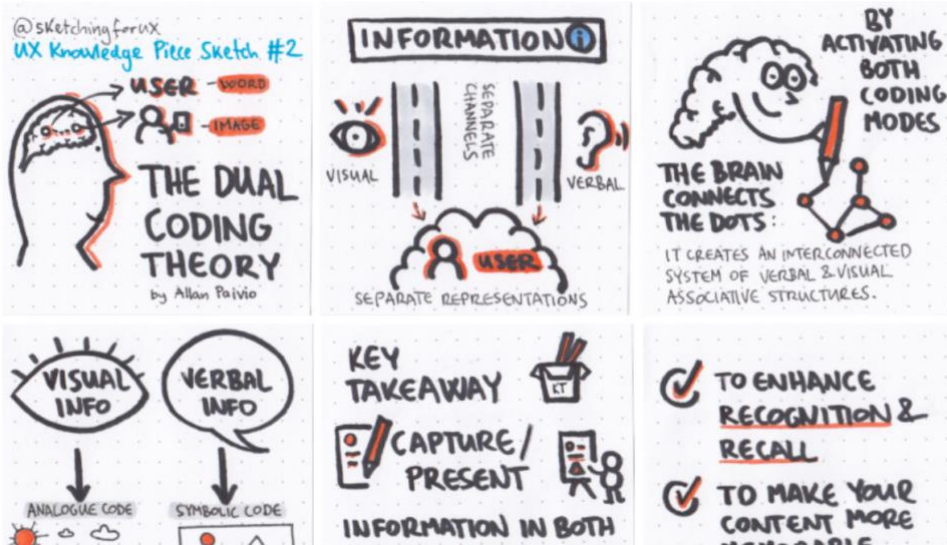 @sketchingforux
UX Knowledge Piece Sketch #2
USER - WORD
- IMAGE
THE DUAL
CODING
THEORY
by Allan Paivio
INFORMATION i
SEPARATE
CHANNELS
VISUAL
VERBAL
USER
SEPARATE REPRESENTATIONS
BY
ACTIVATING
BOTH
CODING
MODES
THE BRAIN
CONNECTS
THE DOTS:
IT CREATES AN INTERCONNECTED
SYSTEM OF VERBAL & VISUAL
ASSOCIATIVE STRUCTURES.
VISUAL
INFO
VERBAL
INFO
ANALOGUE CODE
SYMBOLIC CODE
KEY
TAKEAWAY
KT
CAPTURE/
PRESENT
INFORMATION IN BOTH
TO ENHANCE
RECOGNITION &
RECALL
TO MAKE YOUR
CONTENT MORE